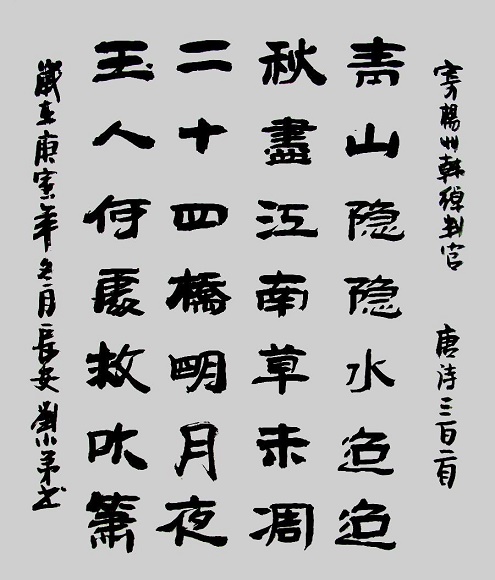 寄楊州韩绰判官 唐诗三百首
青山隐隐水迢迢
秋盡江南草未凋
二十四橋明月夜
玉人何處教吹簫
歲在庚寅年冬月長安劉小弟书